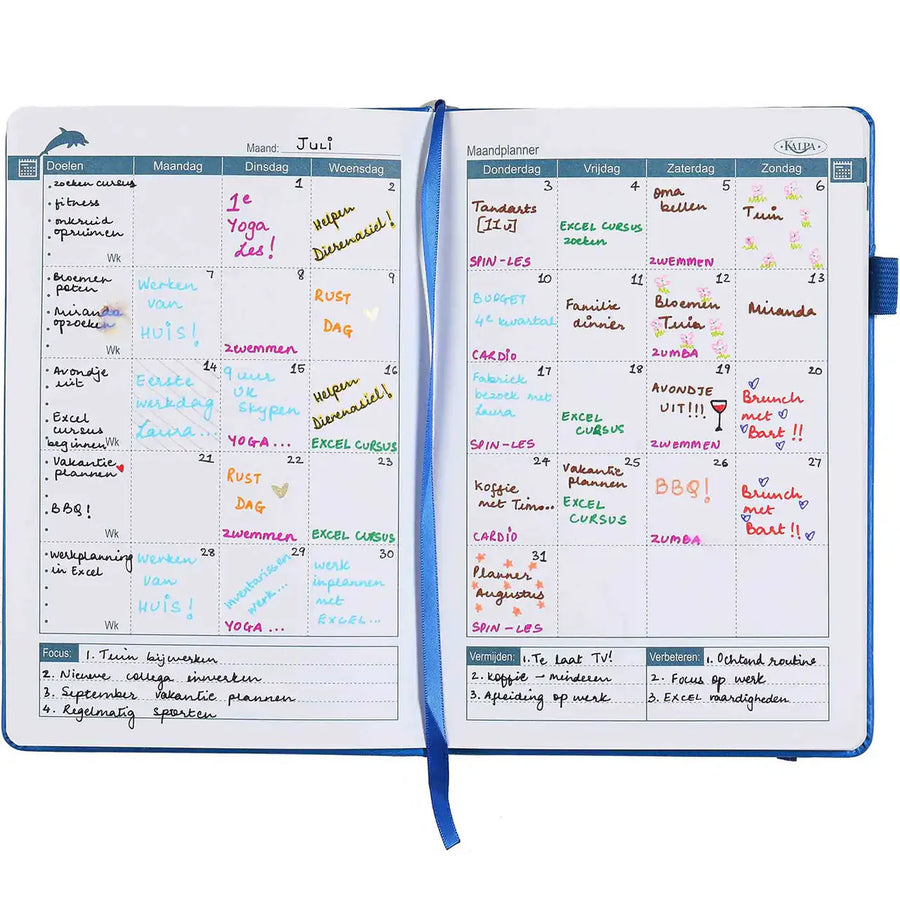 Maand: Juli
Doelen
Maandag
Dinsdag
Woensdag
zoeken cursus
fitness
onkruid
opruimen
Wk
1
1e
Yoga
Les!
2
Helpen
Dierenasiel!
Bloemen
poten
Miranda
opzoeken
Wk
7
Werken
van
HUIS!
8
zwemmen
9
RUST
DAG
Avondje
uit
Excel
cursus
beginnen
Wk
14
Eerste
werkdag
Laura...
15
9 uur
UK
Skypen
YOGA...
16
Helpen
Dierenasiel!
EXCEL CURSUS
Vakantie
plannen
BBQ!
Wk
21
22
RUST
DAG
zwemmen
23
EXCEL CURSUS
werkplanning
in Excel
Wk
28
Werken
van
HUIS!
29
Inventariseren
werk...
YOGA...
30
werk
inplannen
met
EXCEL...
Focus: 1. Tuin bijwerken
2. Nieuwe collega inwerken
3. September vakantie plannen
4. Regelmatig sporten
Maandplanner
KALPA
Donderdag
Vrijdag
Zaterdag
Zondag
3
Tandarts
[11u]
SPIN-LES
4
EXCEL CURSUS
zoeken
5
oma
bellen
ZWEMMEN
6
Tuin
10
BUDGET
4e kwartal
CARDIO
11
Familie
dinner
12
Bloemen
Tuin
ZUMBA
13
Miranda
17
Fabriek
bezoek met
Laura
SPIN-LES
18
EXCEL
CURSUS
19
AVONDJE
UIT!!!
ZWEMMEN
20
Brunch
met
Bart!!
24
Koffie
met Timo...
CARDIO
25
Vakantie
plannen
EXCEL
CURSUS
26
BBQ!
ZUMBA
27
Brunch
met
Bart!!
31
Planner
Augustus
SPIN-LES
Vermijden: 1. Te laat TV!
2. Koffie → minderen
3. Afleiding op werk
Verbeteren: 1. Ochtend routine
2. Focus op werk
3. EXCEL vaardigheden